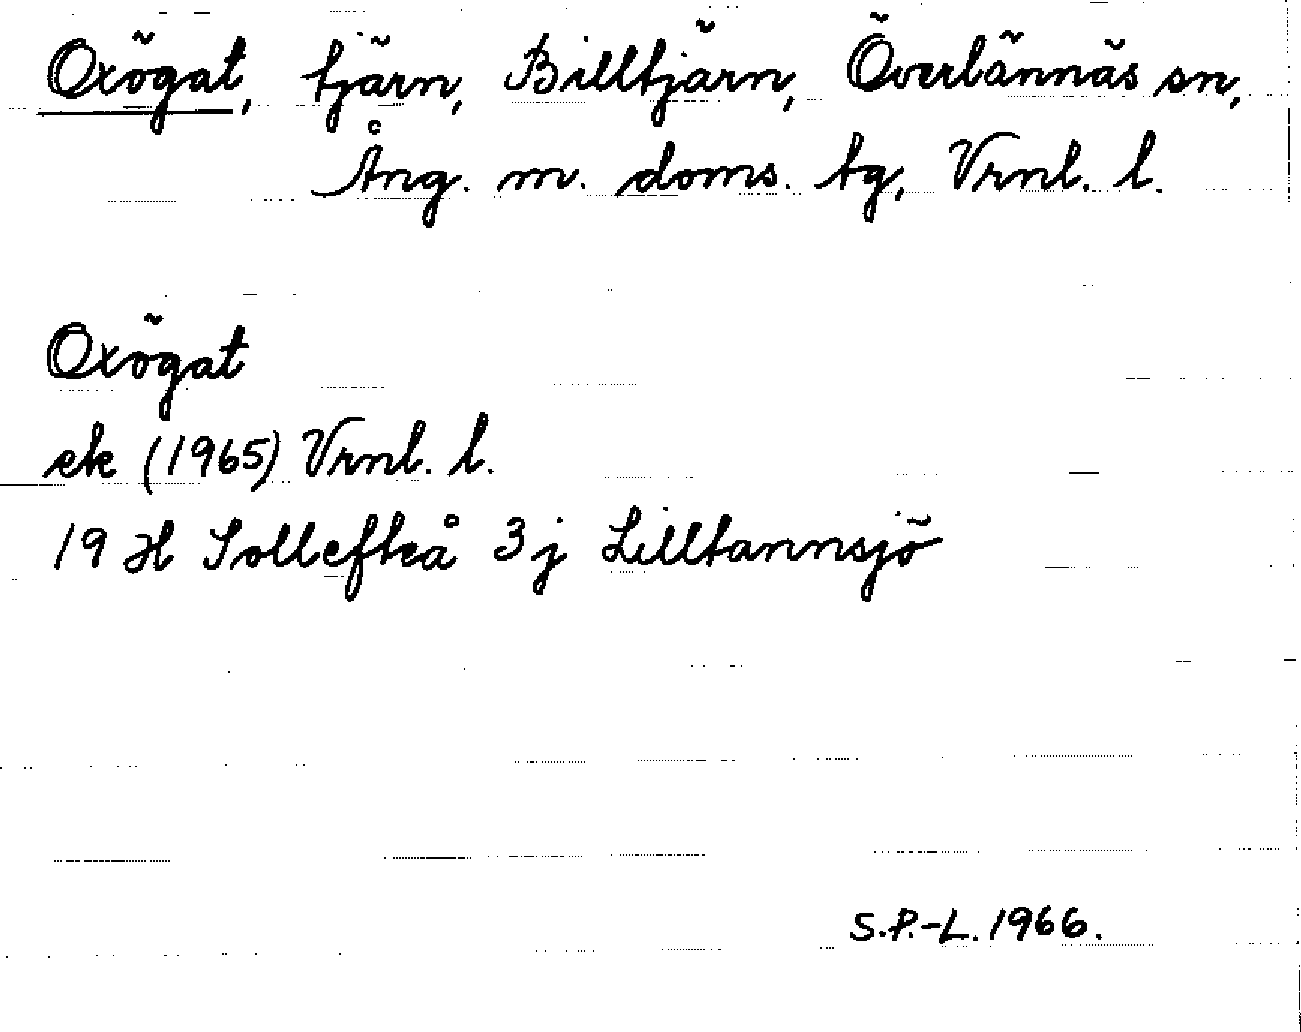 Oxögat, tjärn, Billtjärn, Överlännäs sn,
Ång. m. doms. tg, Vrnl. l.
Oxögat
ek (1965) Vrnl. l.
19 H Sollefteå 3j Lilltannsjö
S.P.-L. 1966.